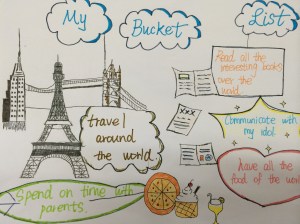 My Bucket List
Read all the
interesting books
over the
world.
travel
around
the world.
Communicate with
my idol
have all the
food of the world
Spend on time with
parents.